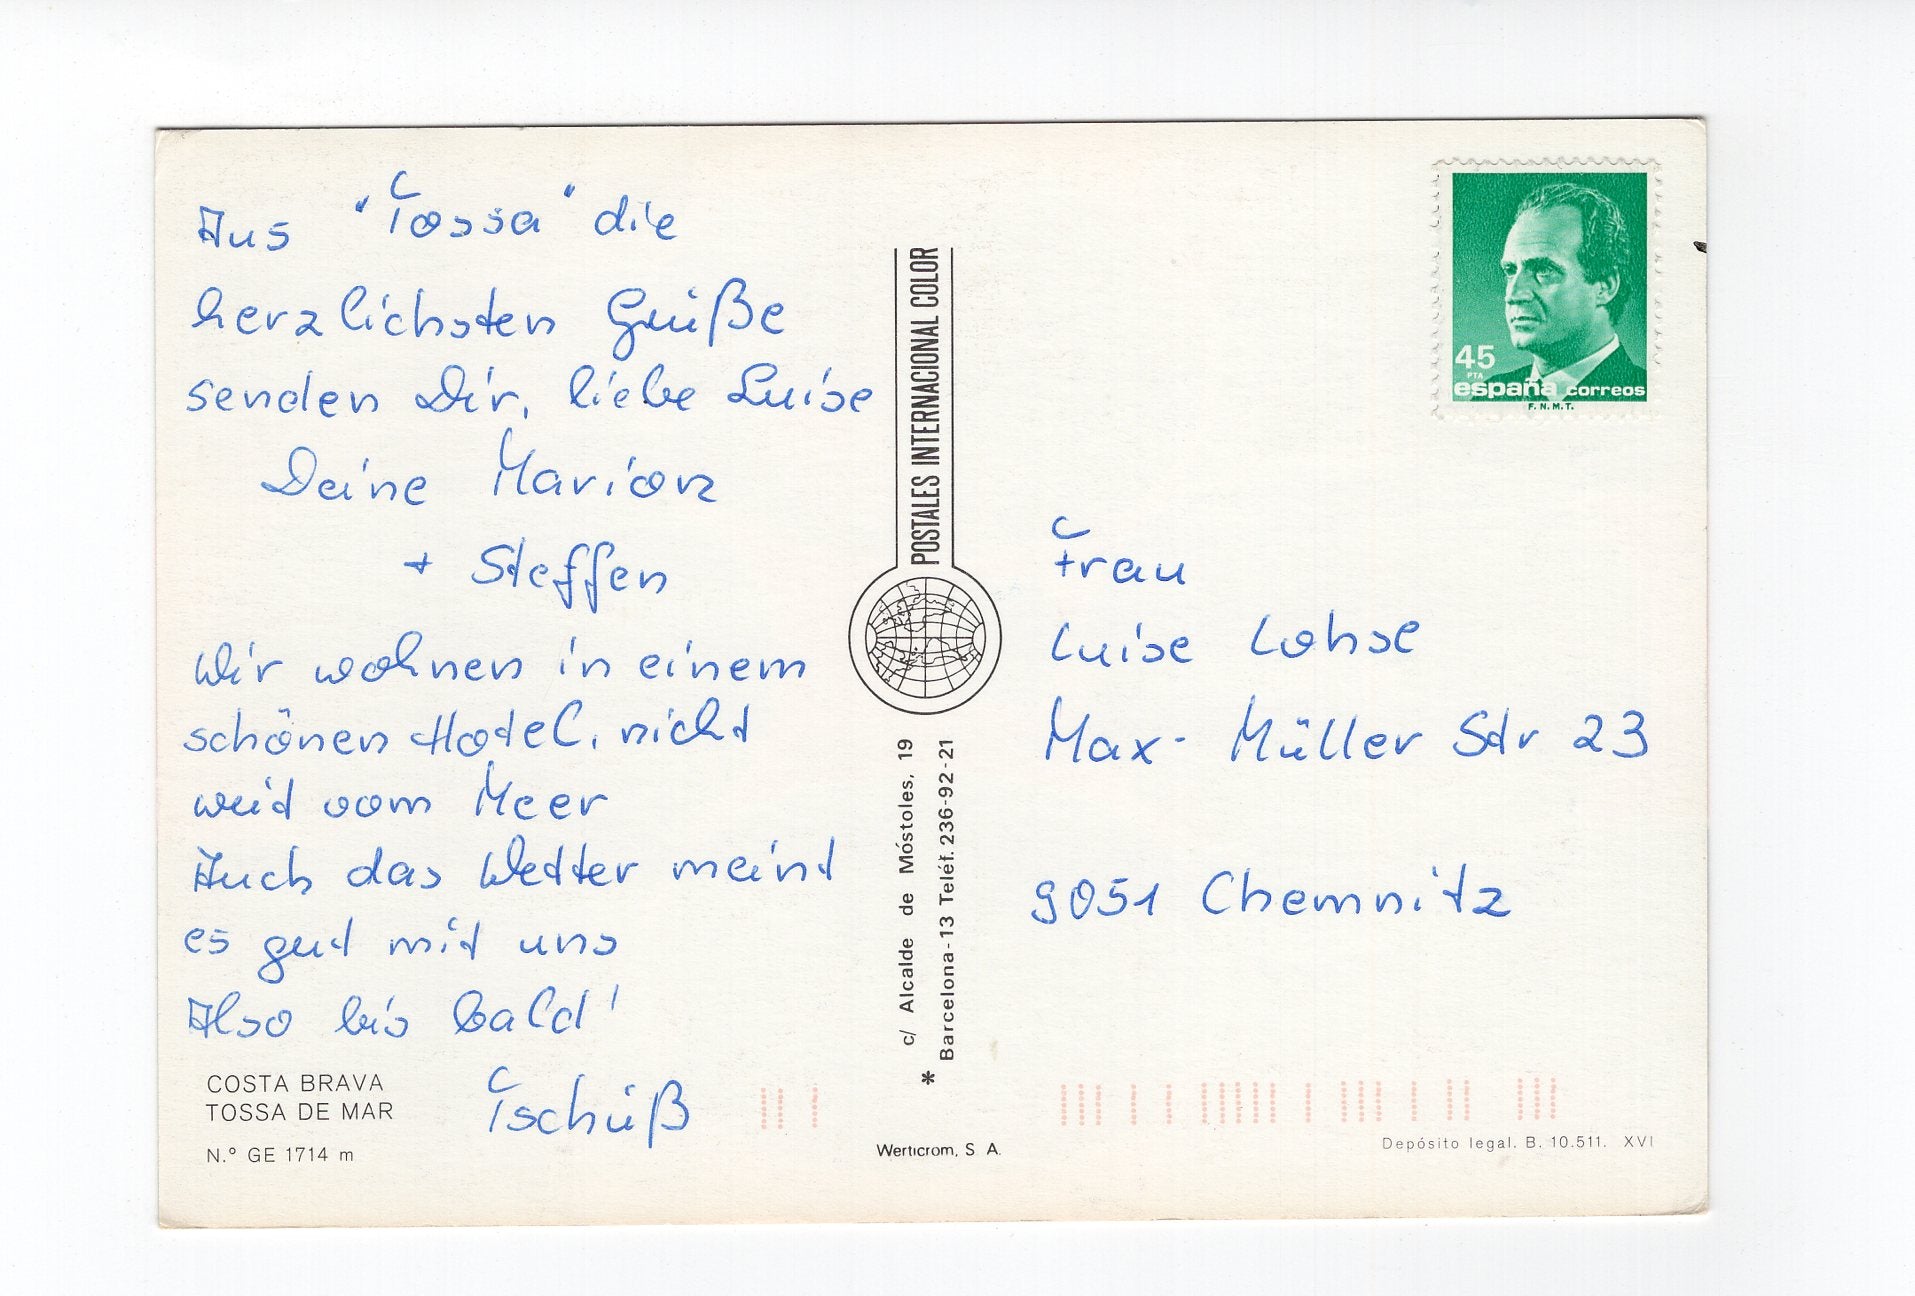 Aus "Tossa" die
herzlichsten Grüße
senden Dir, liebe Luise
Deine Marion
+ Steffen
Wir wohnen in einem
schönen Hotel, nicht
weit vom Meer
Auch das Wetter meint
es gut mit uns
Also bis bald!
Tschüß
COSTA BRAVA
TOSSA DE MAR
N.º GE 1714 m
POSTALES INTERNACIONAL COLOR
c/ Alcalde de Móstoles, 19
* Barcelona-13 Teléf. 236-92-21
Werticrom, S A.
45
PTA
españa correos
F.N.M.T.
Frau
Luise Lohse
Max-Müller Str 23
9051 Chemnitz
Depósito legal. B. 10.511. XVI